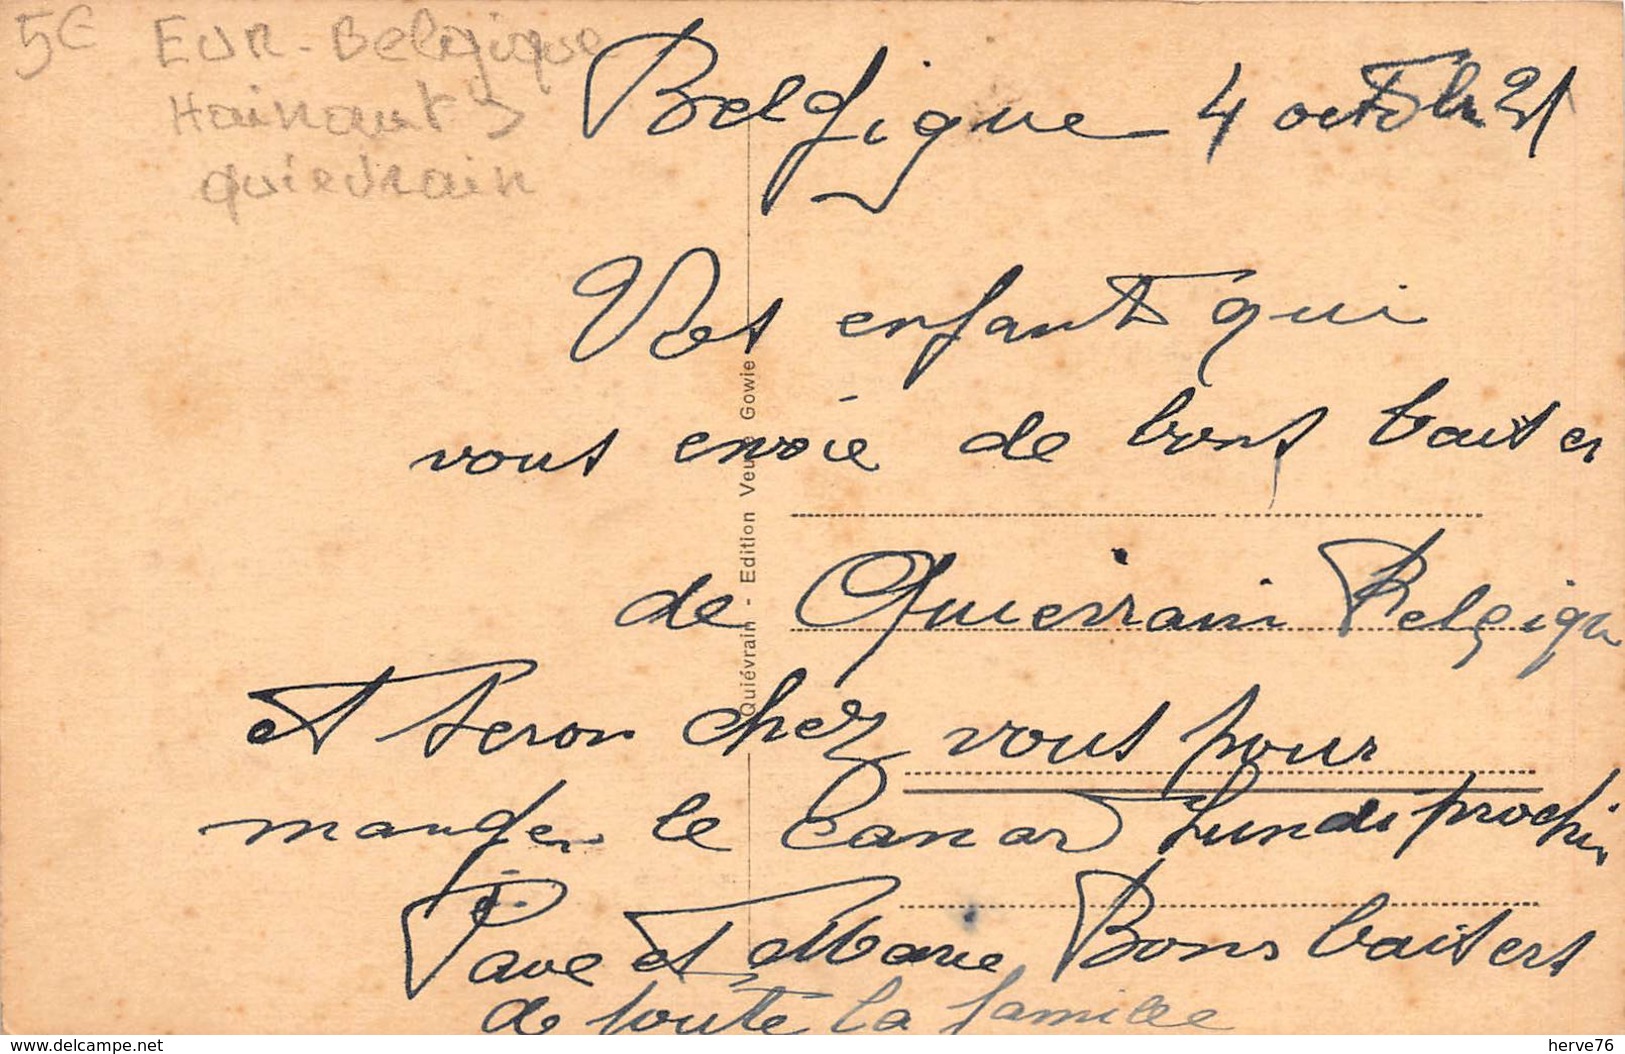 5€
EUR - Belgique
Hainaut >
quievrain
Belgique 4 octobre 21
Vos enfants qui
vous envoie de bons baiser
de Quievrain Belgique
et seron chez vous pour
manger le Canard lundi prochin
et Marie Bons baisers
de toute la famille
Quiévrain - Edition Veuve Gowie
www.delcampe.net
herve76